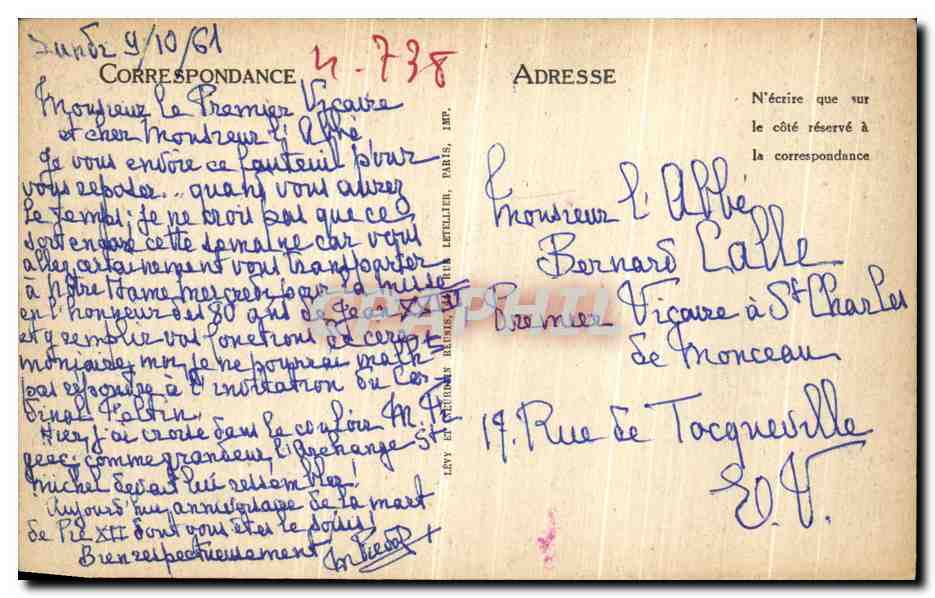 Lundi 9/10/61
4.738
CORRESPONDANCE
Monsieur le Premier Vicaire
et cher Monsieur l'Abbé
Je vous envoie ce fauteuil pour
vous reposer... quand vous aurez
le temps; je ne crois pas que ce
soit encore cette semaine car vous
allez certainement vous transporter
à Notre Dame mercredi pour la messe
en l'honneur des 80 ans de Jean XXIII
et y remplir vos fonctions de céré
moniaire; moi je ne pourrai
pas répondre à l'invitation du Car-
dinal Feltin.
Hier j'ai croisé dans le couloir M.
comme grandeur, l'Archange St
Michel devait lui ressembler!
Aujourd'hui anniversaire de la mort
de Pie XII dont vous êtes le
Bien respectueusement
ADRESSE
N'écrire que sur
le côté réservé à
la correspondance
Monsieur l'Abbé
Bernard Lalle
Premier Vicaire à St Charles
de Monceau
17. Rue de Tocqueville
E.V.
LÉVY ET NEURDEIN RÉUNIS, RUE LETELLIER, PARIS, IMP.
DELCAMPE